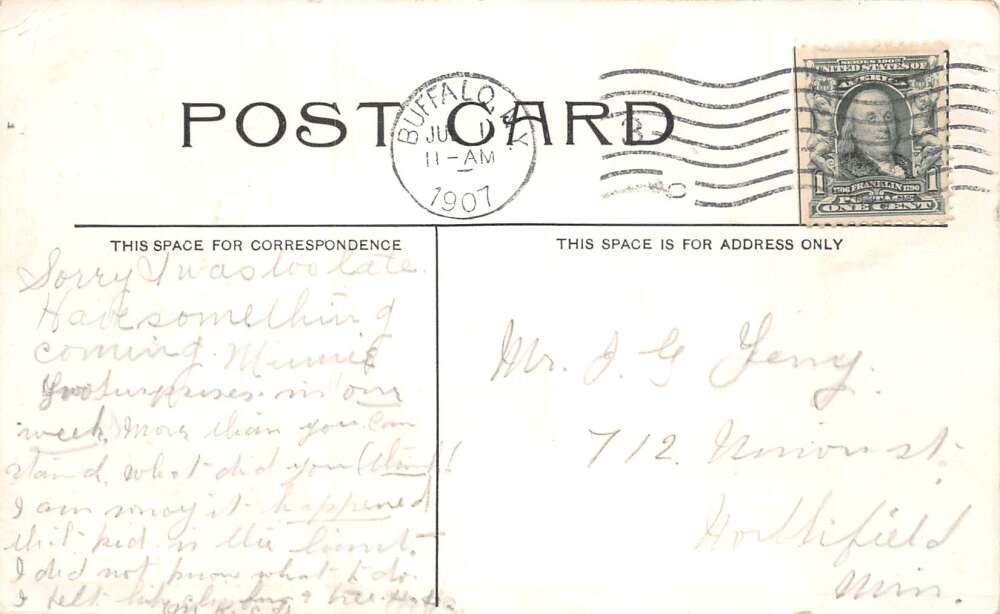 POST CARD
BUFFALO, N.Y.
JU 1
11-AM
1907
SERIES 1902
UNITED STATES OF
AMERICA
1 1706 FRANKLIN 1790 1
POSTAGE
ONE CENT
THIS SPACE FOR CORRESPONDENCE
Sorry I was too late.
Have something
coming. Minnie
Two surprises in our
week) more than you can
stand, what did you (think)!
I am sorry it happened
that kid is the limit.
I did not know what to do.
I felt like climbing a tree
THIS SPACE IS FOR ADDRESS ONLY
Mr. J. G.
712 Union st.
Northfield
Minn.